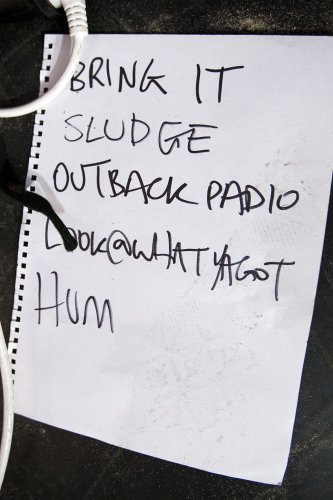 BRING IT
SLUDGE
OUTBACK RADIO
LOOK@WHATYAGOT
HUM